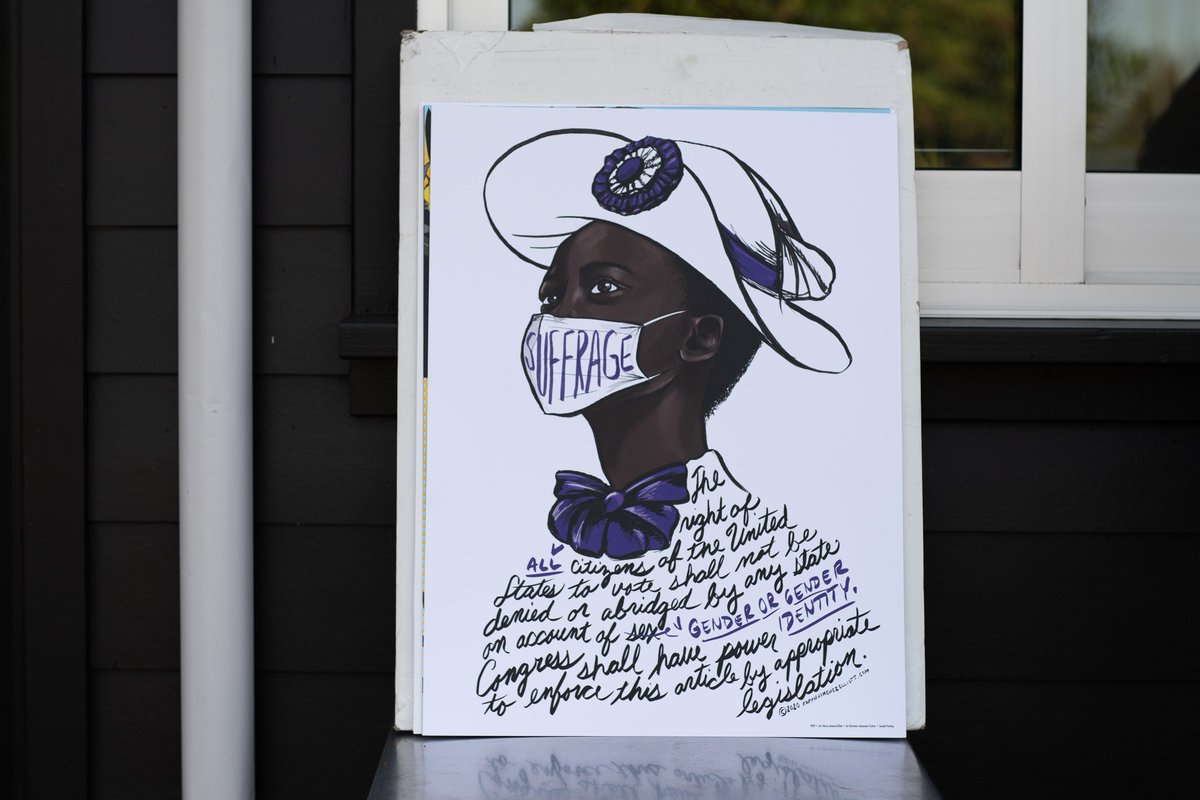 SUFFRAGE
The
right of
ALL citizens of the United
States to vote shall not be
denied or abridged by any state
on account of sex GENDER OR GENDER
IDENTITY.
Congress shall have power
to enforce this article by appropriate
legislation.
©2020